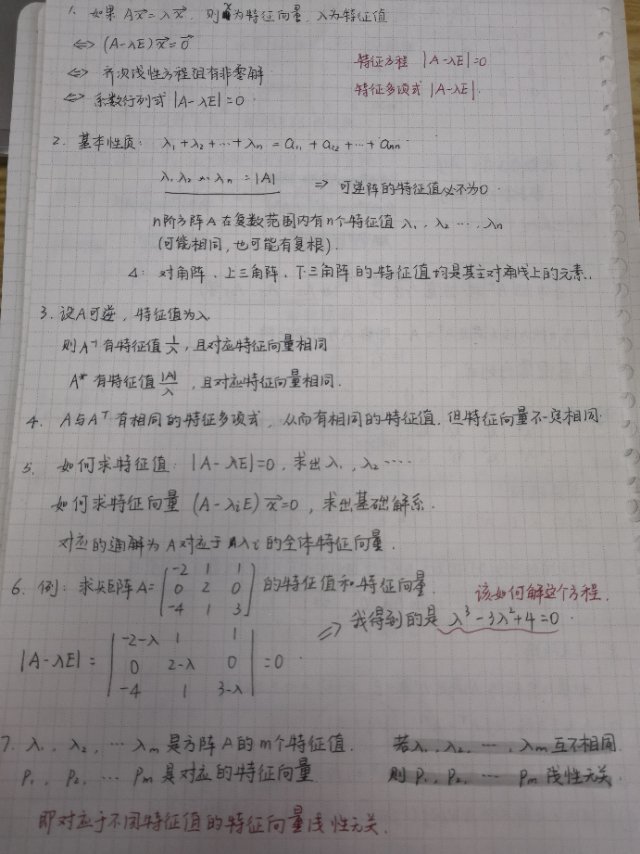 1. 如果 Ax⃗=λx⃗, 则x⃗为特征向量, λ为特征值
⇔ (A-λE)x⃗=0⃗
⇔ 齐次线性方程组有非零解
特征方程 |A-λE|=0
⇔ 系数行列式 |A-λE|=0.
特征多项式 |A-λE|.
2. 基本性质: λ₁+λ₂+…+λn = a₁₁+a₂₂+…+ann
λ₁λ₂…λn=|A| ⇒ 可逆阵的特征值必不为0.
n阶方阵A在复数范围内有n个特征值 λ₁、λ₂…、λn
(可能相同,也可能有复根).
Δ: 对角阵、上三角阵、下三角阵的特征值均是其主对角线上的元素.
3. 设A可逆, 特征值为λ
则A⁻¹有特征值 1/λ, 且对应特征向量相同
A* 有特征值 |A|/λ, 且对应特征向量相同.
4. A与Aᵀ有相同的特征多项式, 从而有相同的特征值, 但特征向量不一定相同.
5. 如何求特征值: |A-λE|=0, 求出λ₁、λ₂……
如何求特征向量 (A-λiE)x⃗=0, 求出基础解系.
对应的通解为A对应于λi的全体特征向量.
6. 例: 求矩阵A=(-2 1 1
0 2 0
-4 1 3) 的特征值和特征向量.
该如何解这个方程.
⇒ 我得到的是 λ³-3λ²+4=0.
|A-λE| = |-2-λ 1 1
0 2-λ 0
-4 1 3-λ| =0
7. λ₁、λ₂、…λm是方阵A的m个特征值. 若λ₁、λ₂、…、λm互不相同
P₁、P₂、…Pm是对应的特征向量 则P₁、P₂、…Pm线性无关.
即对应于不同特征值的特征向量线性无关.